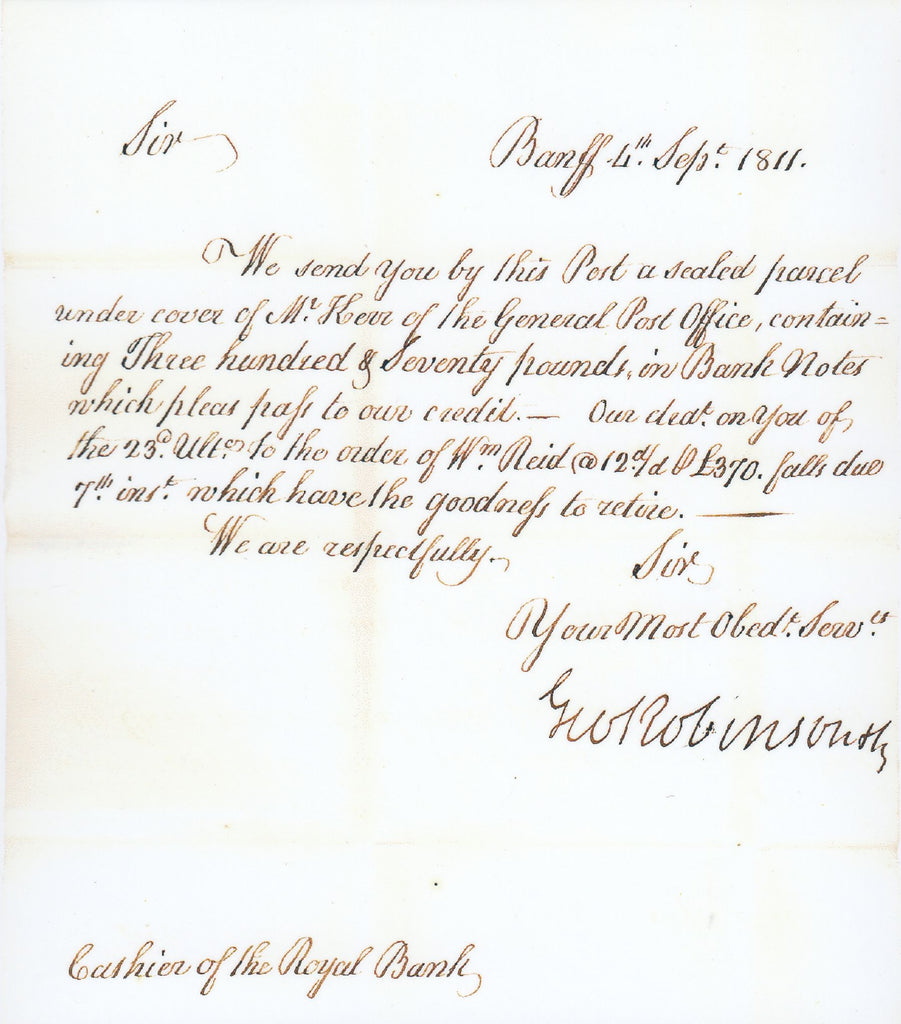 Sir
Banff 4th Sept. 1811.
We send you by this Post a sealed parcel
under cover of Mr. Kerr of the General Post Office, contain=
ing Three hundred & Seventy pounds, in Bank Notes
which pleas pass to our credit. — Our draft. on you of
the 23d. Ulto. to the order of Wm Reid @ 12d/d £370. falls due
7th inst. which have the goodness to retire. —
We are respectfully.
Sir
Your Most Obedt. Servts
Geo Robinson
Cashier of the Royal Bank